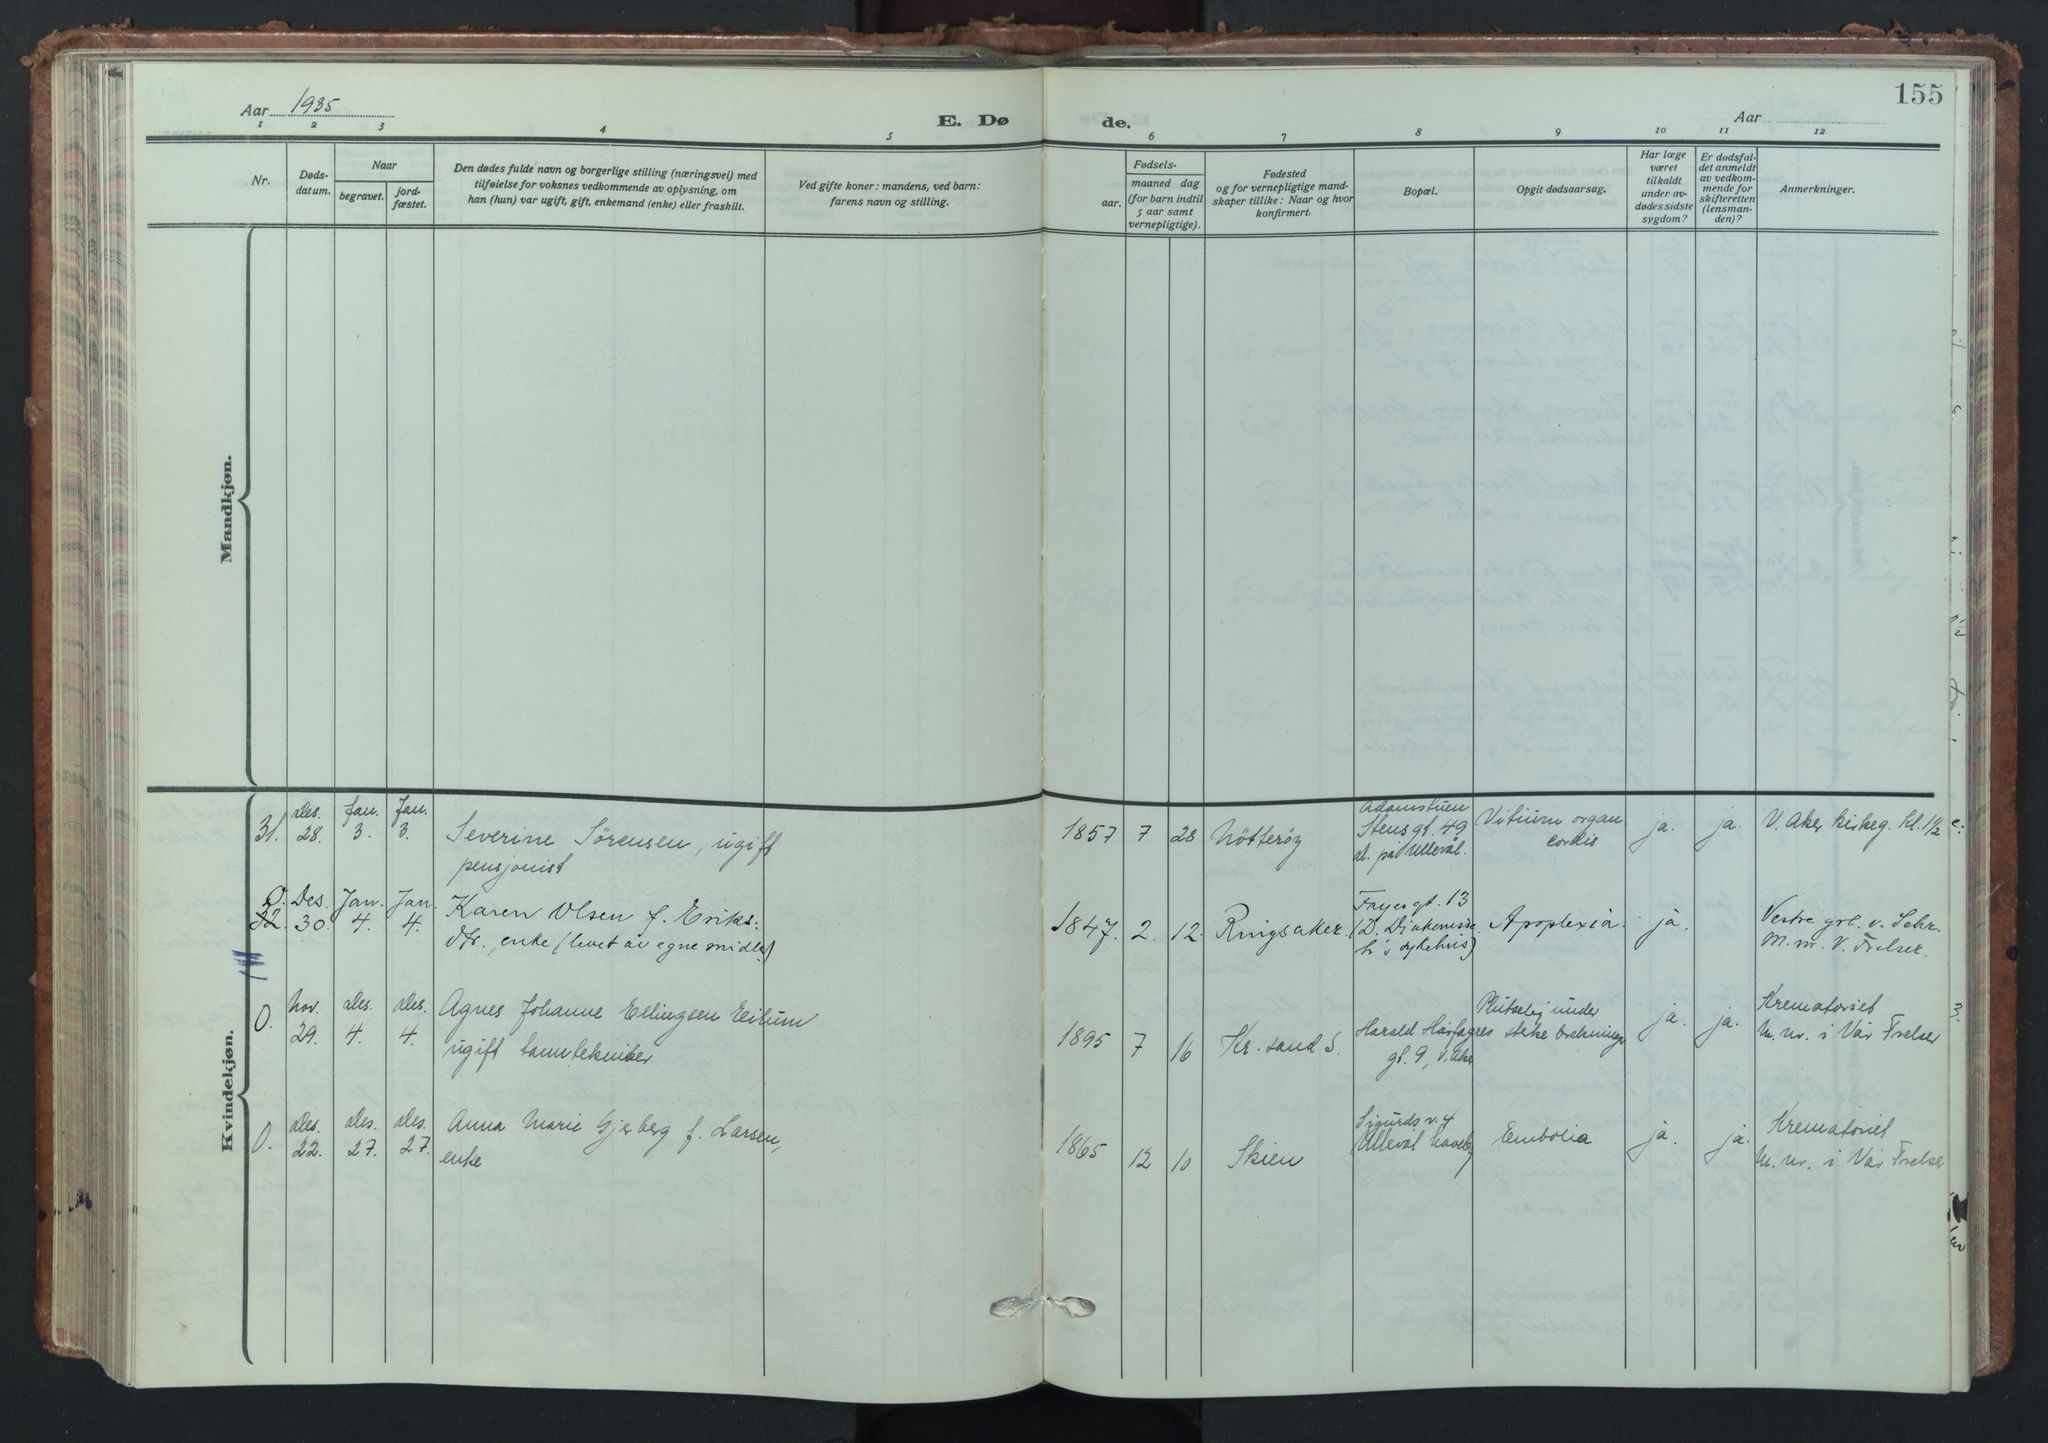 155
Aar 1935
E. Dø
de.
Aar
1 2 3 4 5 6 7 8 9 10 11 12
Nr.
Døds-
datum.
Naar
begravet.
jord-
fæstet.
Den dødes fulde navn og borgerlige stilling (næringsvei) med
tilføielse for voksnes vedkommende av oplysning, om
han (hun) var ugift, gift, enkemand (enke) eller fraskilt.
Ved gifte koner: mandens, ved barn:
farens navn og stilling.
Fødsels-
aar.
maaned dag
(for barn indtil
5 aar samt
vernepligtige).
Fødested
og for vernepligtige mand-
skaper tillike: Naar og hvor
konfirmert.
Bopæl.
Opgit dødsaarsag.
Har læge
været
tilkaldt
under av-
dødes sidste
sygdom?
Er dødsfal-
det anmeldt
av vedkom-
mende for
skifteretten
(lensman-
den)?
Anmerkninger.
Mandkjøn.
Kvindekjøn.
31. Des. 28. Jan. 3. Jan. 3. Severine Sörensen, ugift
pensjonist
1857 7 28 Nötteröy
Adamstuen
Stensgt. 49
d. på Ullevål.
Vitium organ
cordis
ja. ja. V. Aker kirkeg. kl. 1½
0.
32. Des. 30. Jan. 4. Jan. 4. Karen Olsen f. Eriks:
dtr., enke (levet av egne midler)
1847. 2. 12. Ringsaker.
Fayesgt. 13
(D. Diakonisse
h's sykehus)
Apoplexia. ja.
Vestre grl. v. Sehr.
M. nr. V. Frelser.
0. Nov. 29. Des. 4. Des. 4. Agnes Johanne Ellingsen Eilum
ugift tanntekniker
1895 7 16 Kr. sand S.
Harald Hårfagres
gt. 9, V. Aker
Plutselig under
ja. ja. Krematoriet
M. nr. i Vår Frelser
0. Des. 22. Des. 27. Des. 27. Anna Marie Gjerberg f. Larsen,
enke
1865 12 10 Skien
Sigurds v. 4
Ullevål haveby
Embolia ja. ja. Krematoriet
M. nr. i Vår Frelser